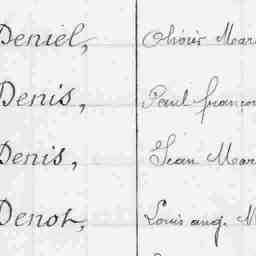 Deniel, Olivier Mar
Denis, Paul françoi
Denis, Jean Mar
Denot, Louis aug. M